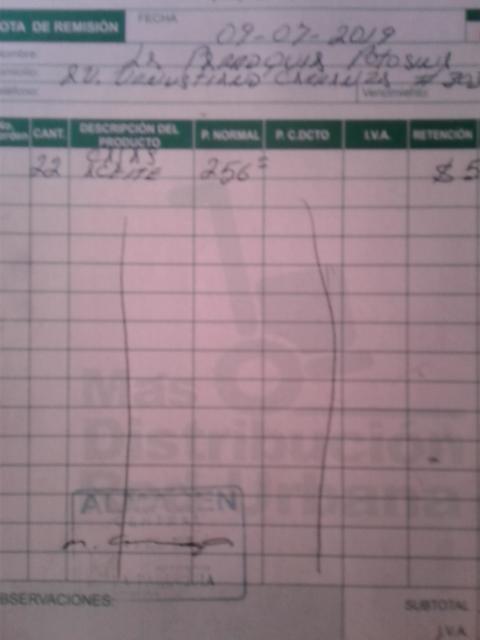 OTA DE REMISIÓN
FECHA
09-07-2019
ombre: La Parroquia Potosina
omicilio: Av. Venustiano Carranza # 303
eléfono:
Vencimiento:
No. orden CANT. DESCRIPCIÓN DEL PRODUCTO P. NORMAL P. C.DCTO I.V.A. RETENCIÓN
22 CAJAS ACEITE 256 $ 5
Más
Distribución
Urbana
ALMACEN
BSERVACIONES:
SUBTOTAL
I.V.A.